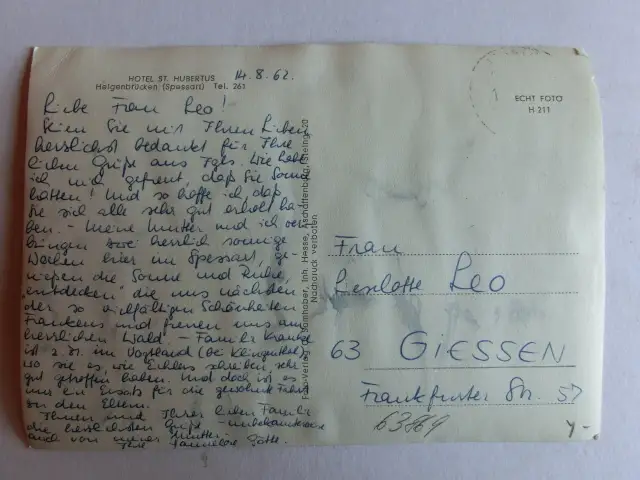 HOTEL ST. HUBERTUS 14.8.62.
Heigenbrücken (Spessart) Tel. 261
Liebe Frau Leo!
Seien Sie mit Ihren Lieben
herzlichst bedankt für Ihre
lieben Grüße aus Igls. Wie habe
ich mich gefreut, daß Sie Sonne
hatten! Und so hoffe ich, daß
Sie sich alle sehr gut erholt ha-
ben. - Meine Mutter und ich ver-
bringen zwei herrlich sonnige
Wochen hier im Spessart, ge-
nießen die Sonne und Ruhe,
"entdecken" die uns nächsten
der so vielfältigen Schönheiten
Frankens und freuen uns am
herrlichen Wald. - Familie
ist z. Zt. im Vogtland (bei Klingenthal)
wo sie es, wie schreiben, sehr
gut getroffen haben. Und doch ist es
nur ein Ersatz für die gewohnte
zu den Eltern.
Ihnen und Ihrer lieben Familie
die herzlichsten Grüße - unbekannterweise
auch von meiner Mutter.
Ihre Hannelore
Inh. Hesse, Aschaffenburg,
Nachdruck verboten
ECHT FOTO
H 211
Frau
Leo
63 GIESSEN
Frankfurter Str. 57